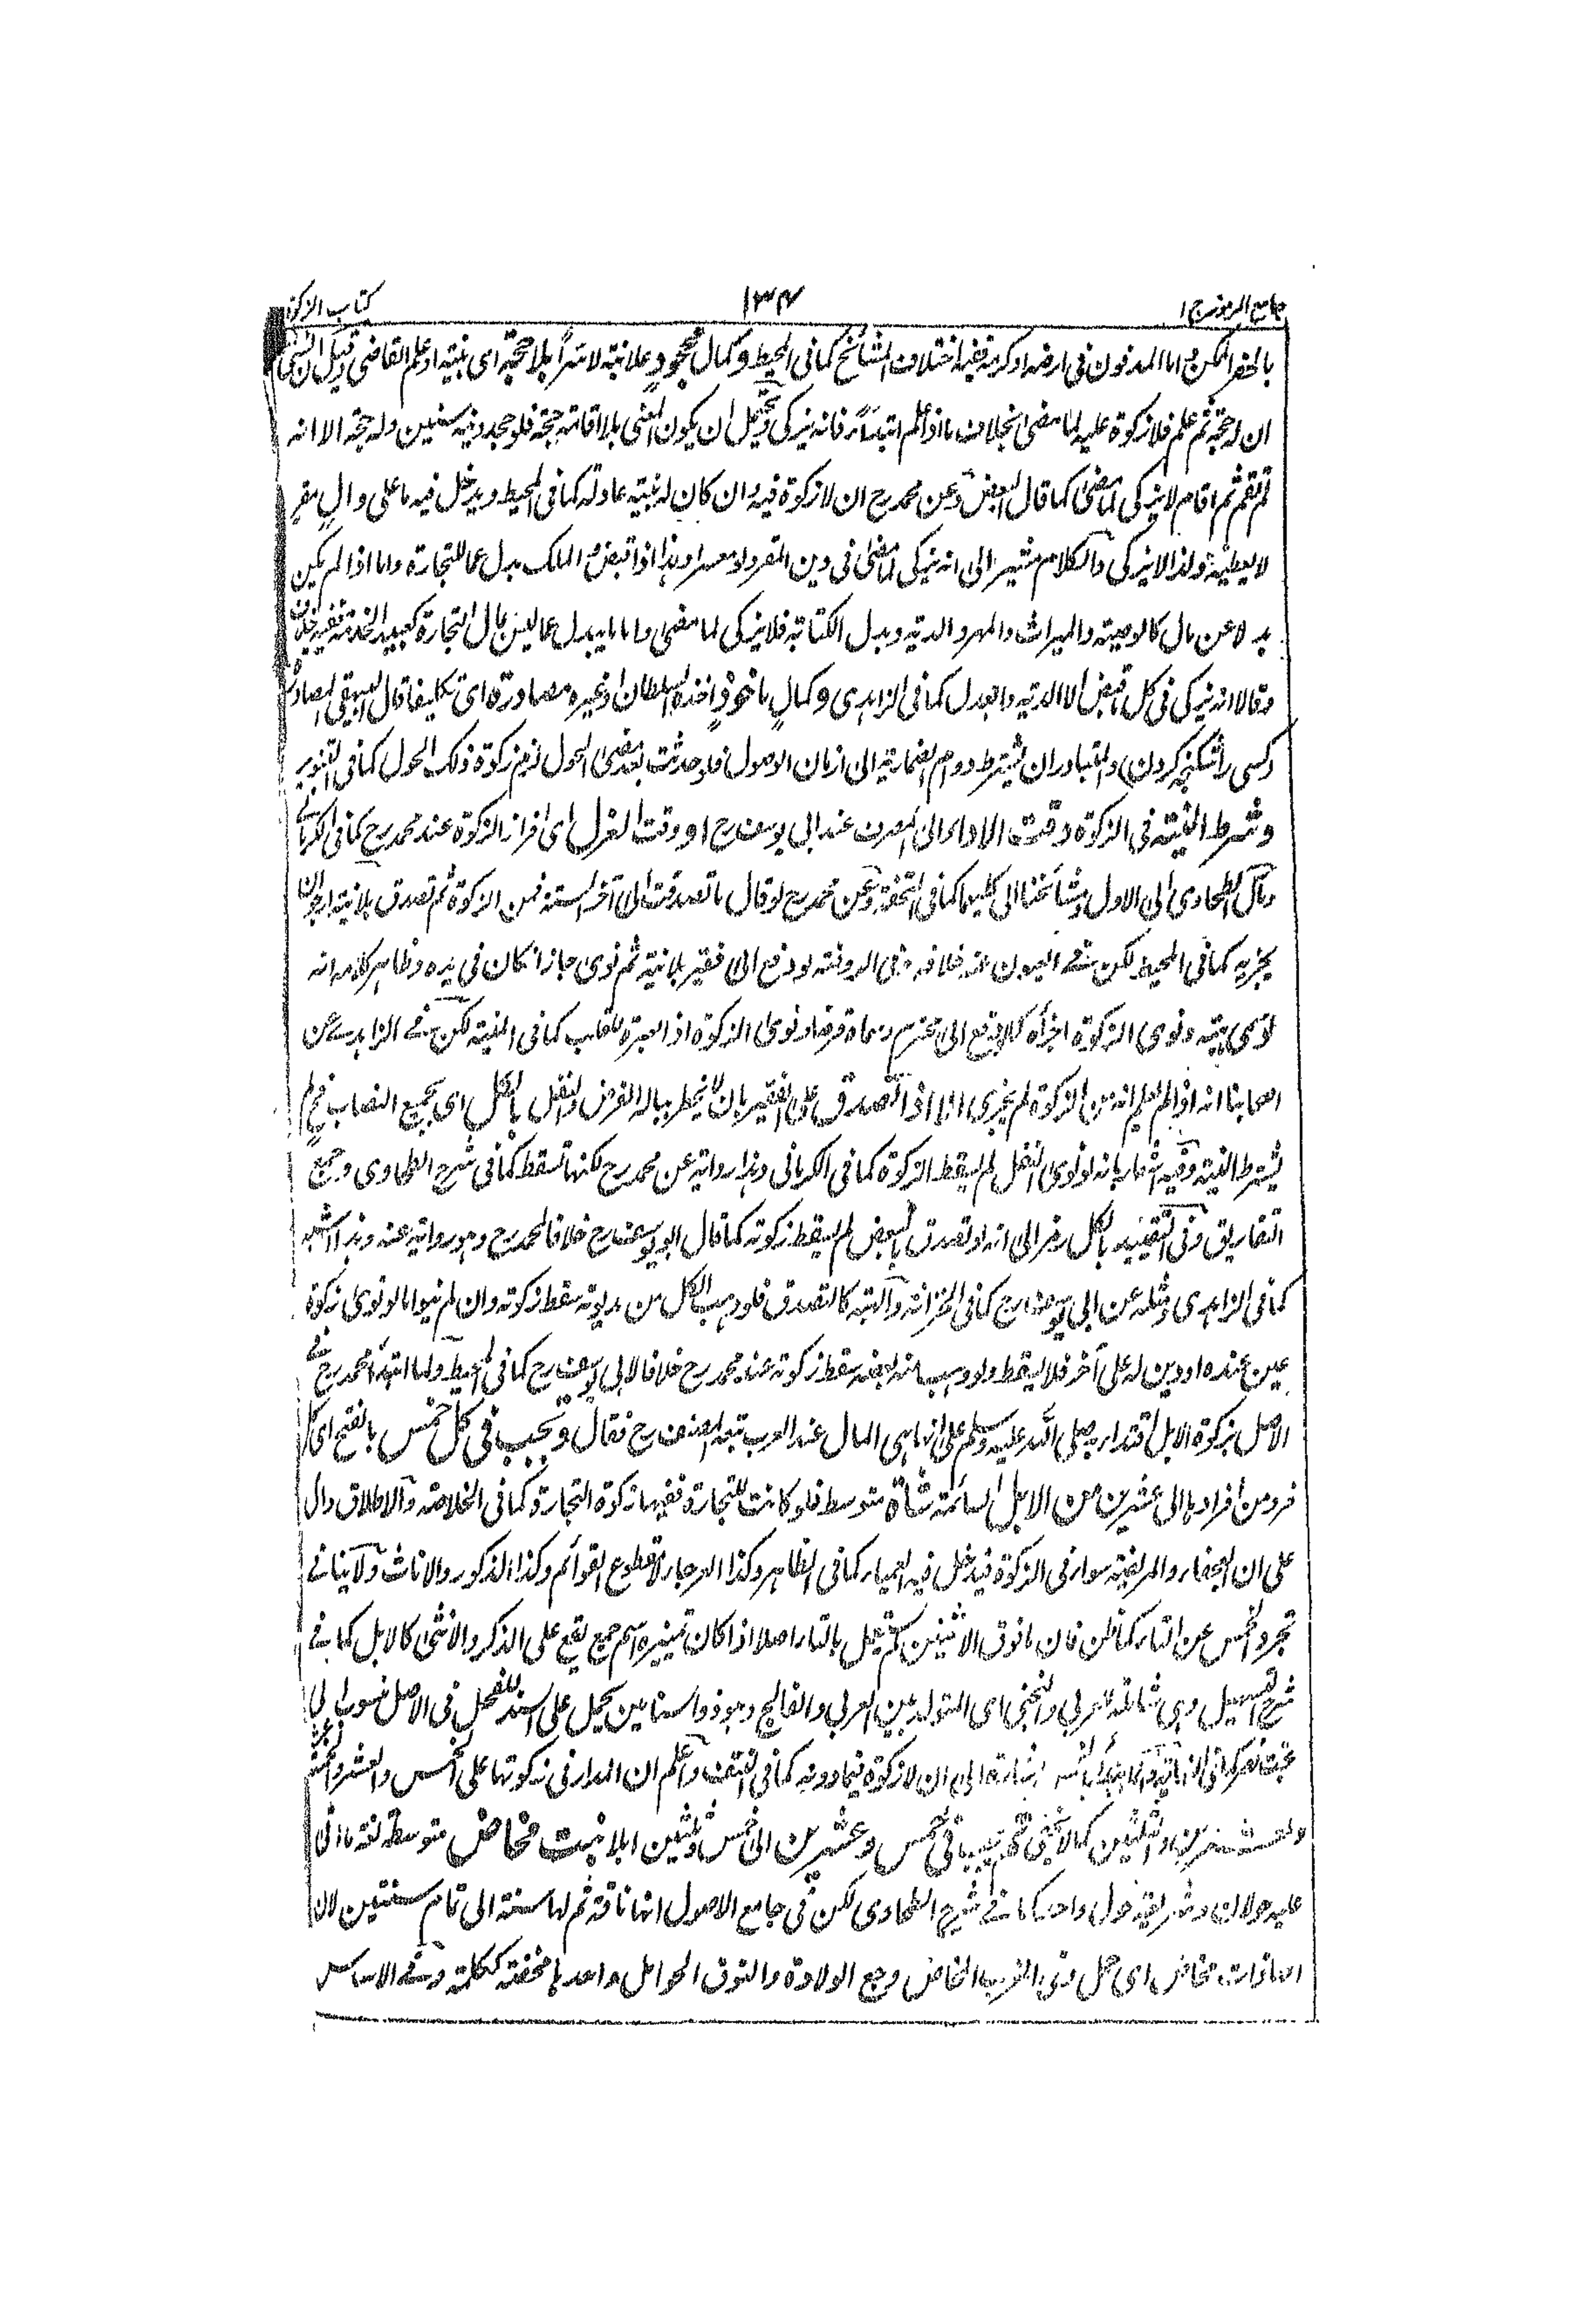 جامع الرموز ج ١
١٣٤
كتاب الزكوة
بالحفر الممكن واما المدفون في ارضه او كرمه ففيه اختلاف المشائخ كما في المحيط وكمال مجحود علانية لا سرا بلا حجة اى بينة او علم القاضى وقيل ان نسى
ان له حجة ثم علم فلا زكوة عليه لما مضى بخلاف ما اذا علم ابتداء فانه يزكى ويحتمل ان يكون المعنى بلا اقامة حجة فلو جحد دينه سنين وله حجة الا انه
لم يقم ثم اقام لا يزكى لما مضى كما قال البعض وعن محمد رح ان لا زكوة فيه وان كان له بينة عادلة كما في المحيط ويدخل فيه ما على وال مقر
لا يعطيه ولذا لا يزكى والكلام مشير الى انه يزكى لما مضى في دين المقر ولو معسرا وهذا اذا قبض والملك بدل عما للتجارة واما اذا لم يكن
بدلا عن مال كالوصية والميراث والمهر والدية وبدل الكتابة فلا يزكى لما مضى واما ما يبدل عما ليس بمال التجارة كعبيد الخدمة ففيه خلاف
وقالا انه يزكى في كل ما قبض الا الدية وابدل كما في الزاهدى وكمال ماخوذ اخذه السلطان او غيره مصادرة اى تكليفا قال البيهقى المصادرة
كسى را شكنجه كردن) والمتبادر ان يشترط دوام الضمارية الى ازمان الوصول فلو حدثت بعد مضى الحول لزم زكوة ذلك الحول كما في التنوير
وشرط النية في الزكوة وقت الاداء الى المصرف عند ابى يوسف رح او وقت العزل اى افراز الزكوة عند محمد رح كما في الكرمانى
ومال الطحاوى الى الاول ومشائخنا الى كليهما كما في التحفة وعن محمد رح لو قال ما تصدقت الى آخر السنة فمن الزكوة ثم تصدق بلا نية ارجو ان
يجزيه كما في المحيط لكن في العيون عنه خلافه وفى الروضة لو دفع الى فقير بلا نية ثم نوى جاز ان كان في يده وظاهر كلامه انه
لو سمى هبة ونوى الزكوة اجزأه كما لو دفع الى محترم وسماه قرضا ونوى الزكوة اذ العبرة للقلب كما في المنية لكن في الزاهدى عن
اصحابنا انه اذا لم يعلم انه من الزكوة لم يجزى الا اذا تصدق على الفقير بان لا يخطر بباله الفرض والنفل بالكل اى بجميع النصاب فح لم
يشترط النية وفيه اشعار بانه لو نوى النفل لم يسقط الزكوة كما في الكرمانى وهذا رواية عن محمد رح لكنها تسقط كما في شرح الطحاوى وجميع
التفاريق وفى التقييد بالكل رمز الى انه لو تصدق بالبعض لم يسقط زكوته كما قال ابو يوسف رح خلافا لمحمد رح وهو رواية عنه وهذا اشبه
كما في الزاهدى ومثله عن ابى يوسف رح كما في الخزانة والهبة كالتصدق فلو وهب الكل من مديونه سقط زكوته وان لم ينو اما لو نوى زكوة
عين عنده او دين له على آخر فلا يسقط ولو وهب منه بعضه سقط زكوته عند محمد رح خلافا لابى يوسف رح كما في المحيط ولما ابتدأ محمد رح في
الاصل بزكوة الابل اقتداء به صلى الله عليه وسلم على انها هى المال عند العرب تبعه المصنف رح فقال وتجب في كل خمس بالفتح اى كل
فرد من افرادها الى عشرين من الابل السائمة شاة متوسط فلو كانت للتجارة ففيها زكوة التجارة كما في الخلاصة والاطلاق دال
على ان العجفاء والمريضة سواء في الزكوة فيدخل فيه العمياء كما في الظاهر وكذا العرجاء لا مقطوع القوائم وكذا الذكور والاناث ولا ينافى
تجرد الخمس عن التاء كما ظن فان ما فوق الاثنين لم يعمل بالتاء اصلا اذا كان تمييزه اسم جمع يقع على الذكر والانثى كالابل كما في
شرح التسهيل وهى ثلثة العربى والبختى اى المتولد بين العربى والفالج وهو ذو السنامين يحمل على السند للفحل في الاصل منسوب الى
بخت نصر كما في النهاية اشارة الى ان لا زكوة فيما دونه كما في المتفق واعلم ان المدار في زكوتها على الخمس والعشر وخمسة عشر
والعشرين والثلثين كما لا يخفى ثم يجب في خمس وعشرين الى خمس وثلثين ابلا بنت مخاض متوسطة لغة ما اتى
عليه حولان وشريعة حول واحد كما في شرح الطحاوى لكن في جامع الاصول انها ناقة ثم لها سنة الى تمام سنتين لان
امها ذات مخاض اى حمل وفى المغرب المخاض وجع الولادة والنوق الحوامل واحدها مخضة ككلمة وفى الاساس